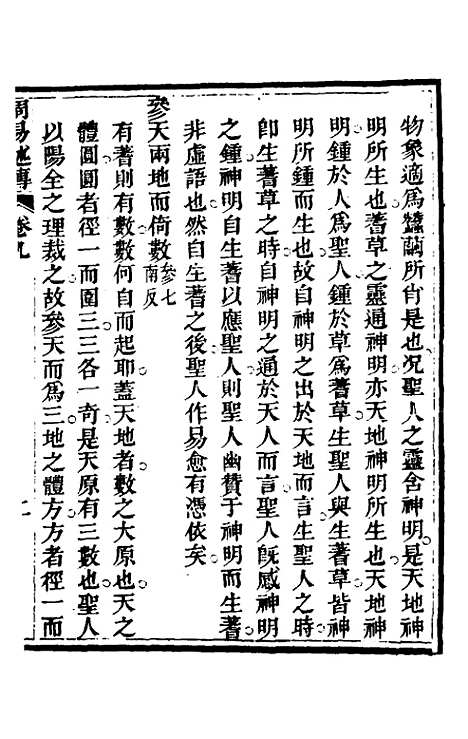 物象適爲蠶繭所肖是也况聖人之靈含神明是天地神
明所生也蓍草之靈通神明亦天地神明所生也天地神
明鍾於人爲聖人鍾於草爲蓍草生聖人與生蓍草皆神
明所鍾而生也故自神明之出於天地而言生聖人之時
卽生蓍草之時自神明之通於天人而言聖人旣感神明
之鍾神明自生蓍以應聖人則聖人幽贊于神明而生蓍
非虛語也然自生蓍之後聖人作易愈有憑依矣
參天兩地而倚數參七南反
有蓍則有數數何自而起耶蓋天地者數之大原也天之
體圓圓者徑一而圍三三各一奇是天原有三數也聖人
以陽全之理裁之故參天而爲三地之體方方者徑一而
周易述傳 卷九